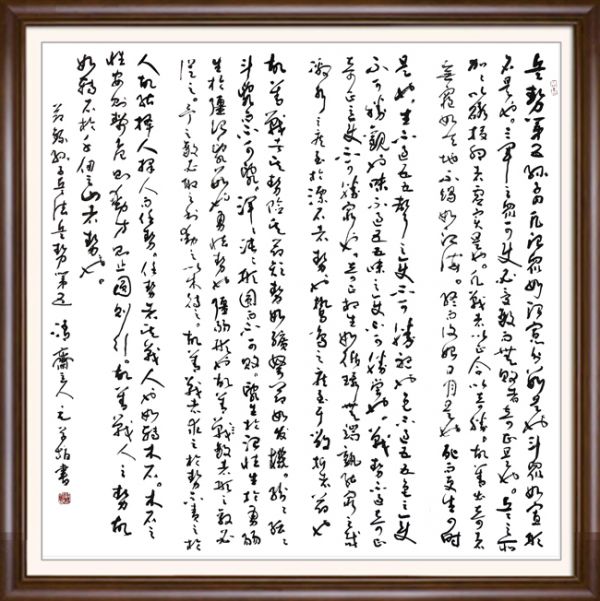 兵勢第五孫子曰凡治眾如治寡分數是也斗眾如斗寡形
名是也。三軍之眾可使必受敵而無敗者奇正是也。兵之所
加如以碬投卵者虛實是也。凡戰者以正合以奇勝。故善出奇者
無窮如天地不竭如江海。終而復始日月是也死而更生四時
是也。聲不過五五聲之變不可勝聽也色不過五五色之變
不可勝觀也味不過五五味之變不可勝嘗也。戰勢不過奇正
奇正之變不可勝窮也。奇正相生如循環無端孰能窮之哉
激水之疾至於漂石者勢也鷙鳥之疾至于毀折者節也
故善戰者其勢險其節短勢如彍弩節如發機。紛紛紜紜
斗亂而不可亂。渾渾沌沌形圓而不可敗。亂生於治怯生於勇弱
生於強治亂數也勇怯勢也強弱形也故善動敵者形之敵必
從之予之敵必取之利動之以卒待之。故善戰者求之於勢不責之於
人故能擇人而任勢。任勢者其戰人也如轉木石。木石之
性安則靜危則動方則止圓則行。故善戰人之勢
如轉石於千仞之山者勢也。
孫子兵法兵勢第五 齋主人 書